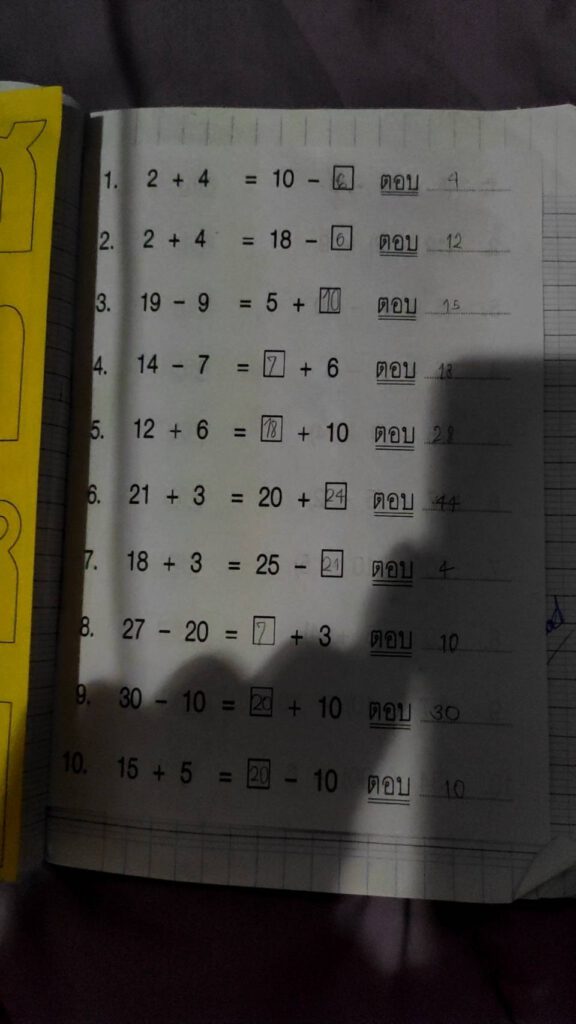 1. 2 + 4 = 10 - 6 ตอบ 4
2. 2 + 4 = 18 - 6 ตอบ 12
3. 19 - 9 = 5 + 10 ตอบ 15
4. 14 - 7 = 7 + 6 ตอบ 13
5. 12 + 6 = 18 + 10 ตอบ 28
6. 21 + 3 = 20 + 24 ตอบ 44
7. 18 + 3 = 25 - 21 ตอบ 4
8. 27 - 20 = 7 + 3 ตอบ 10
9. 30 - 10 = 20 + 10 ตอบ 30
10. 15 + 5 = 20 - 10 ตอบ 10